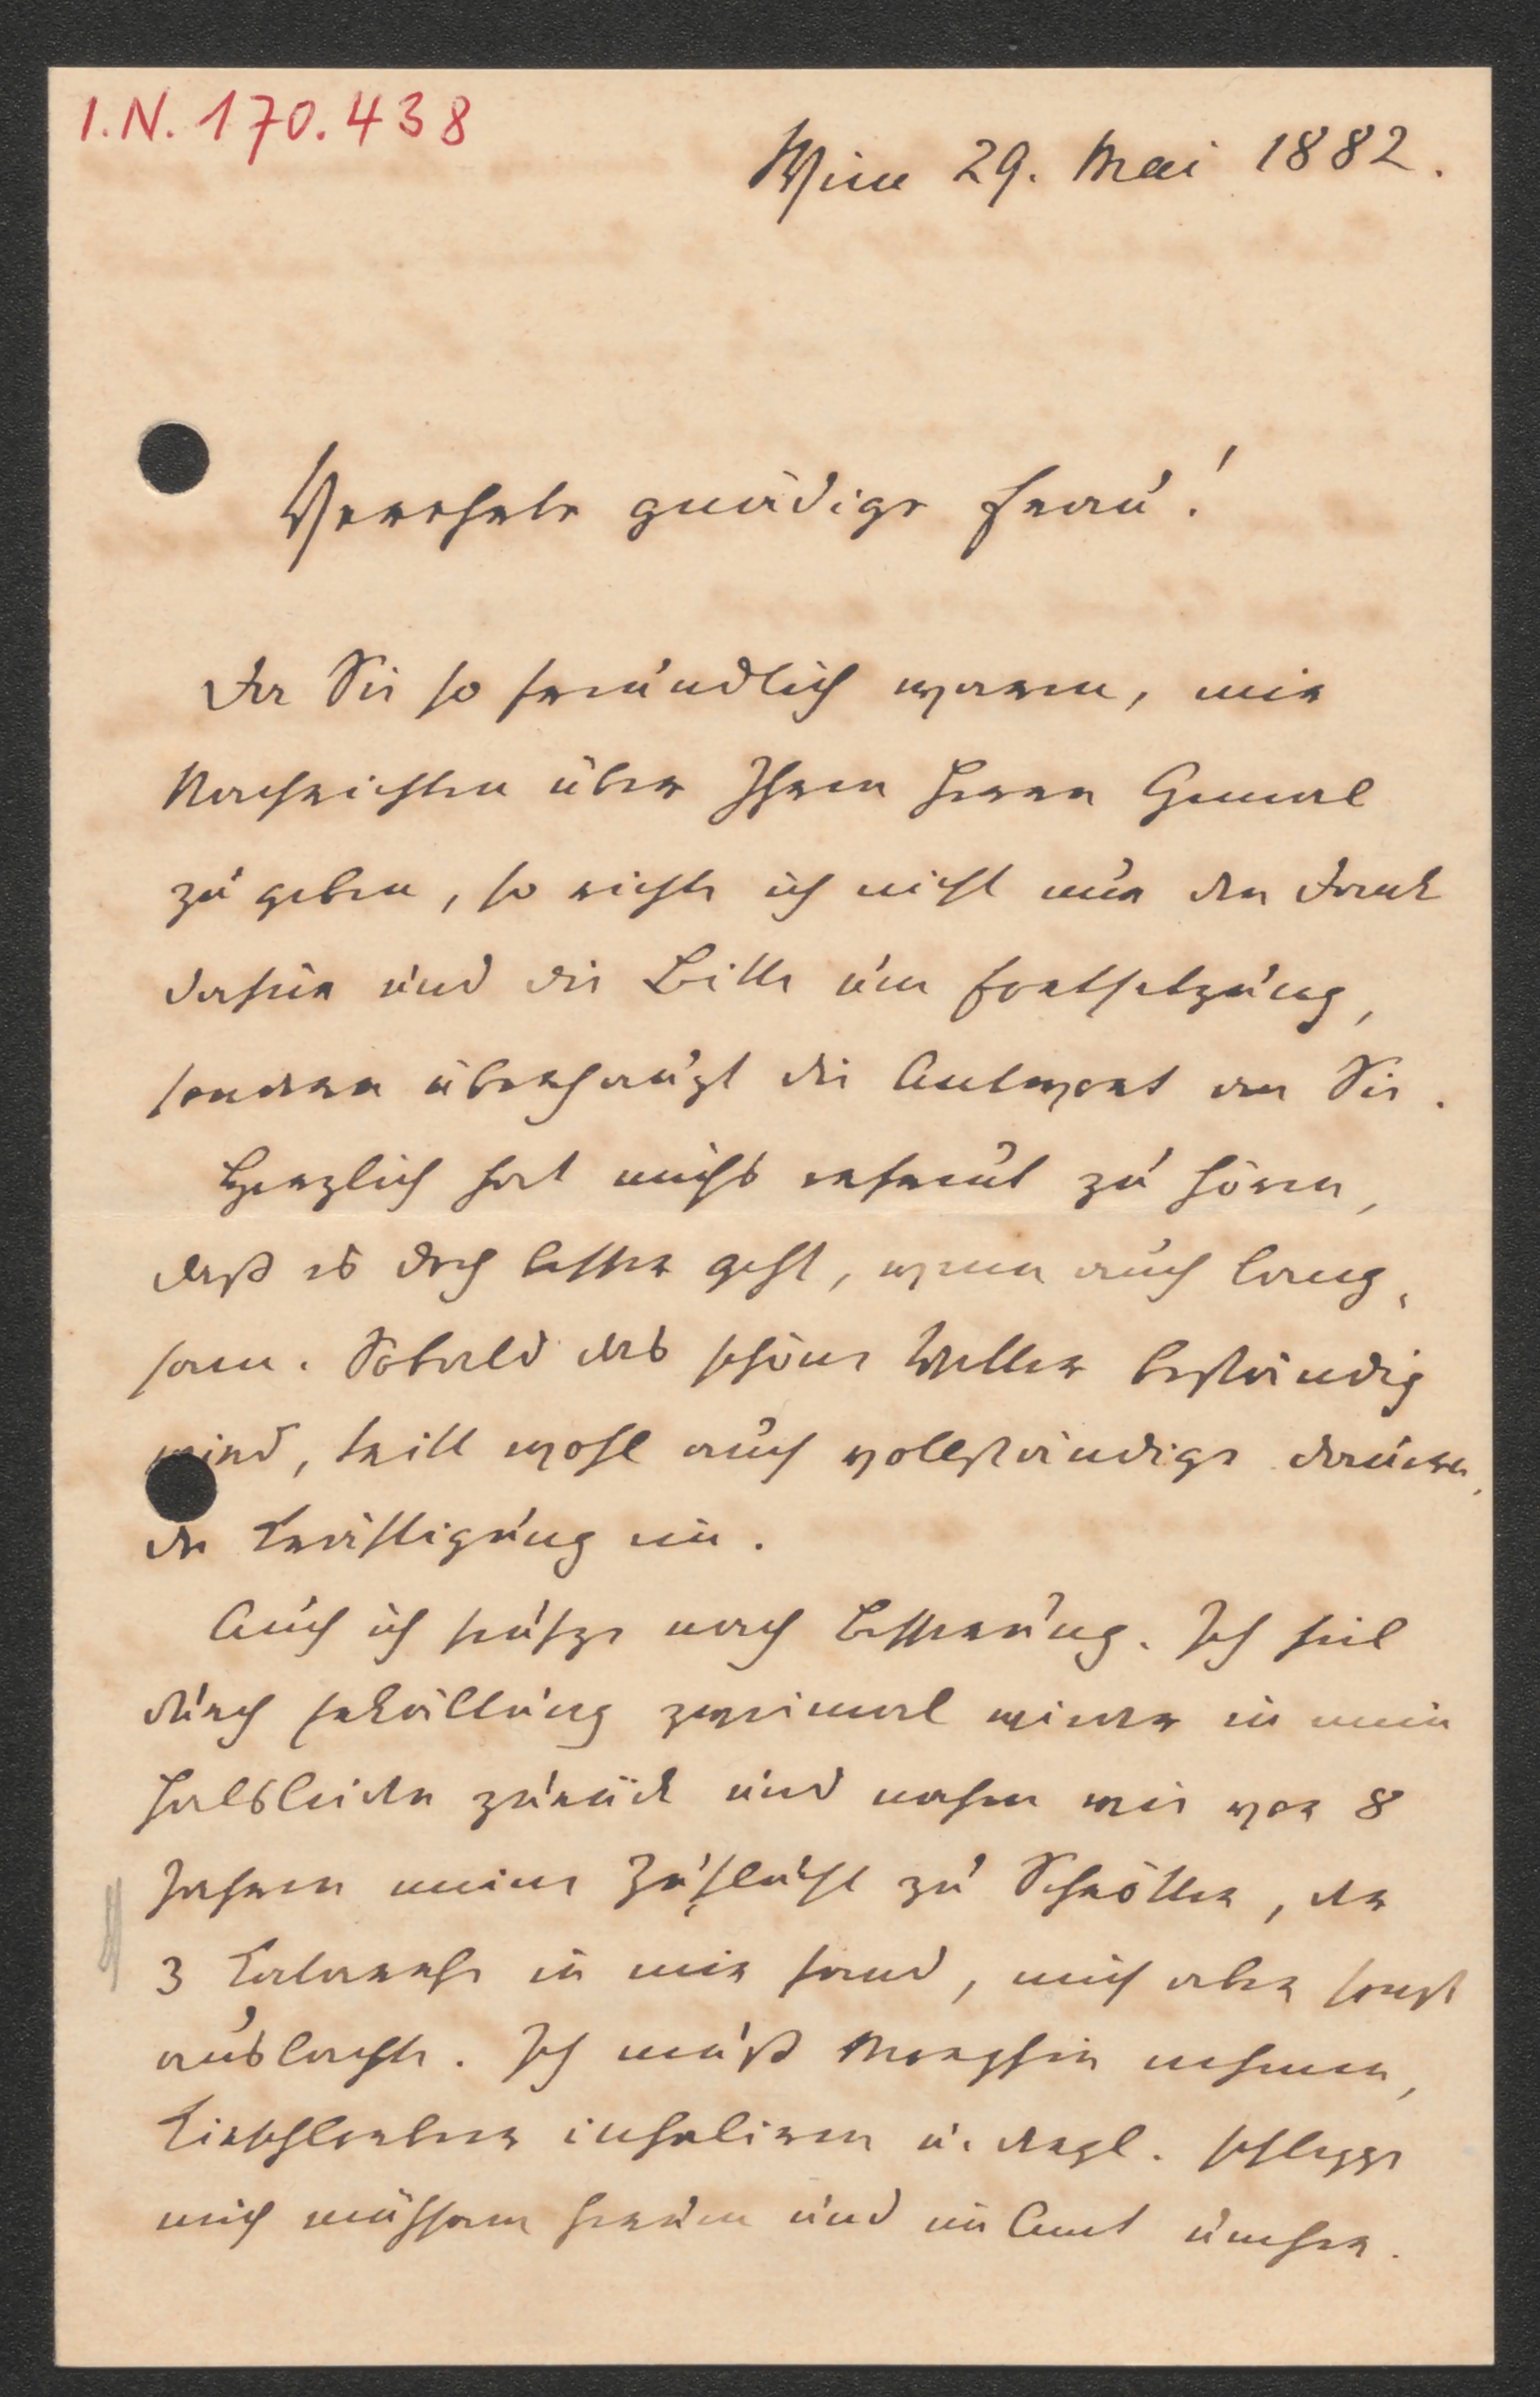 I.N. 170.438
Wien 29. Mai 1882.
Verehrte gnädige Frau!
Da Sie so freundlich waren, mir
Nachrichten über Ihren Herrn Gemal
zu geben, so richte ich nicht nur den Dank
dafür und die Bitte um Fortsetzung,
sondern überhaupt die Antwort an Sie.
Herzlich hat michs erfreut zu hören,
daß es doch besser geht, wenn auch lang¬
sam. Sobald das schöne Wetter beständig
wird, tritt wohl auch vollständige dauern¬
de Kräftigung ein.
Auch ich seufze nach Besserung. Ich fiel
durch Erkältung zweimal wieder in mein
Halsleiden zurück und nahm wie vor 8
Jahren meine Zuflucht zu Schrötter, der
3 Katarrhe in mir fand, mich aber sonst
auslachte. Ich muß Morphin nehmen,
Kirschlorbeer inhaliren u. dergl. schleppe
mich mühsam herum und im Amt umher.